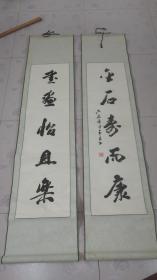 金石寿而康
書畫怡且樂